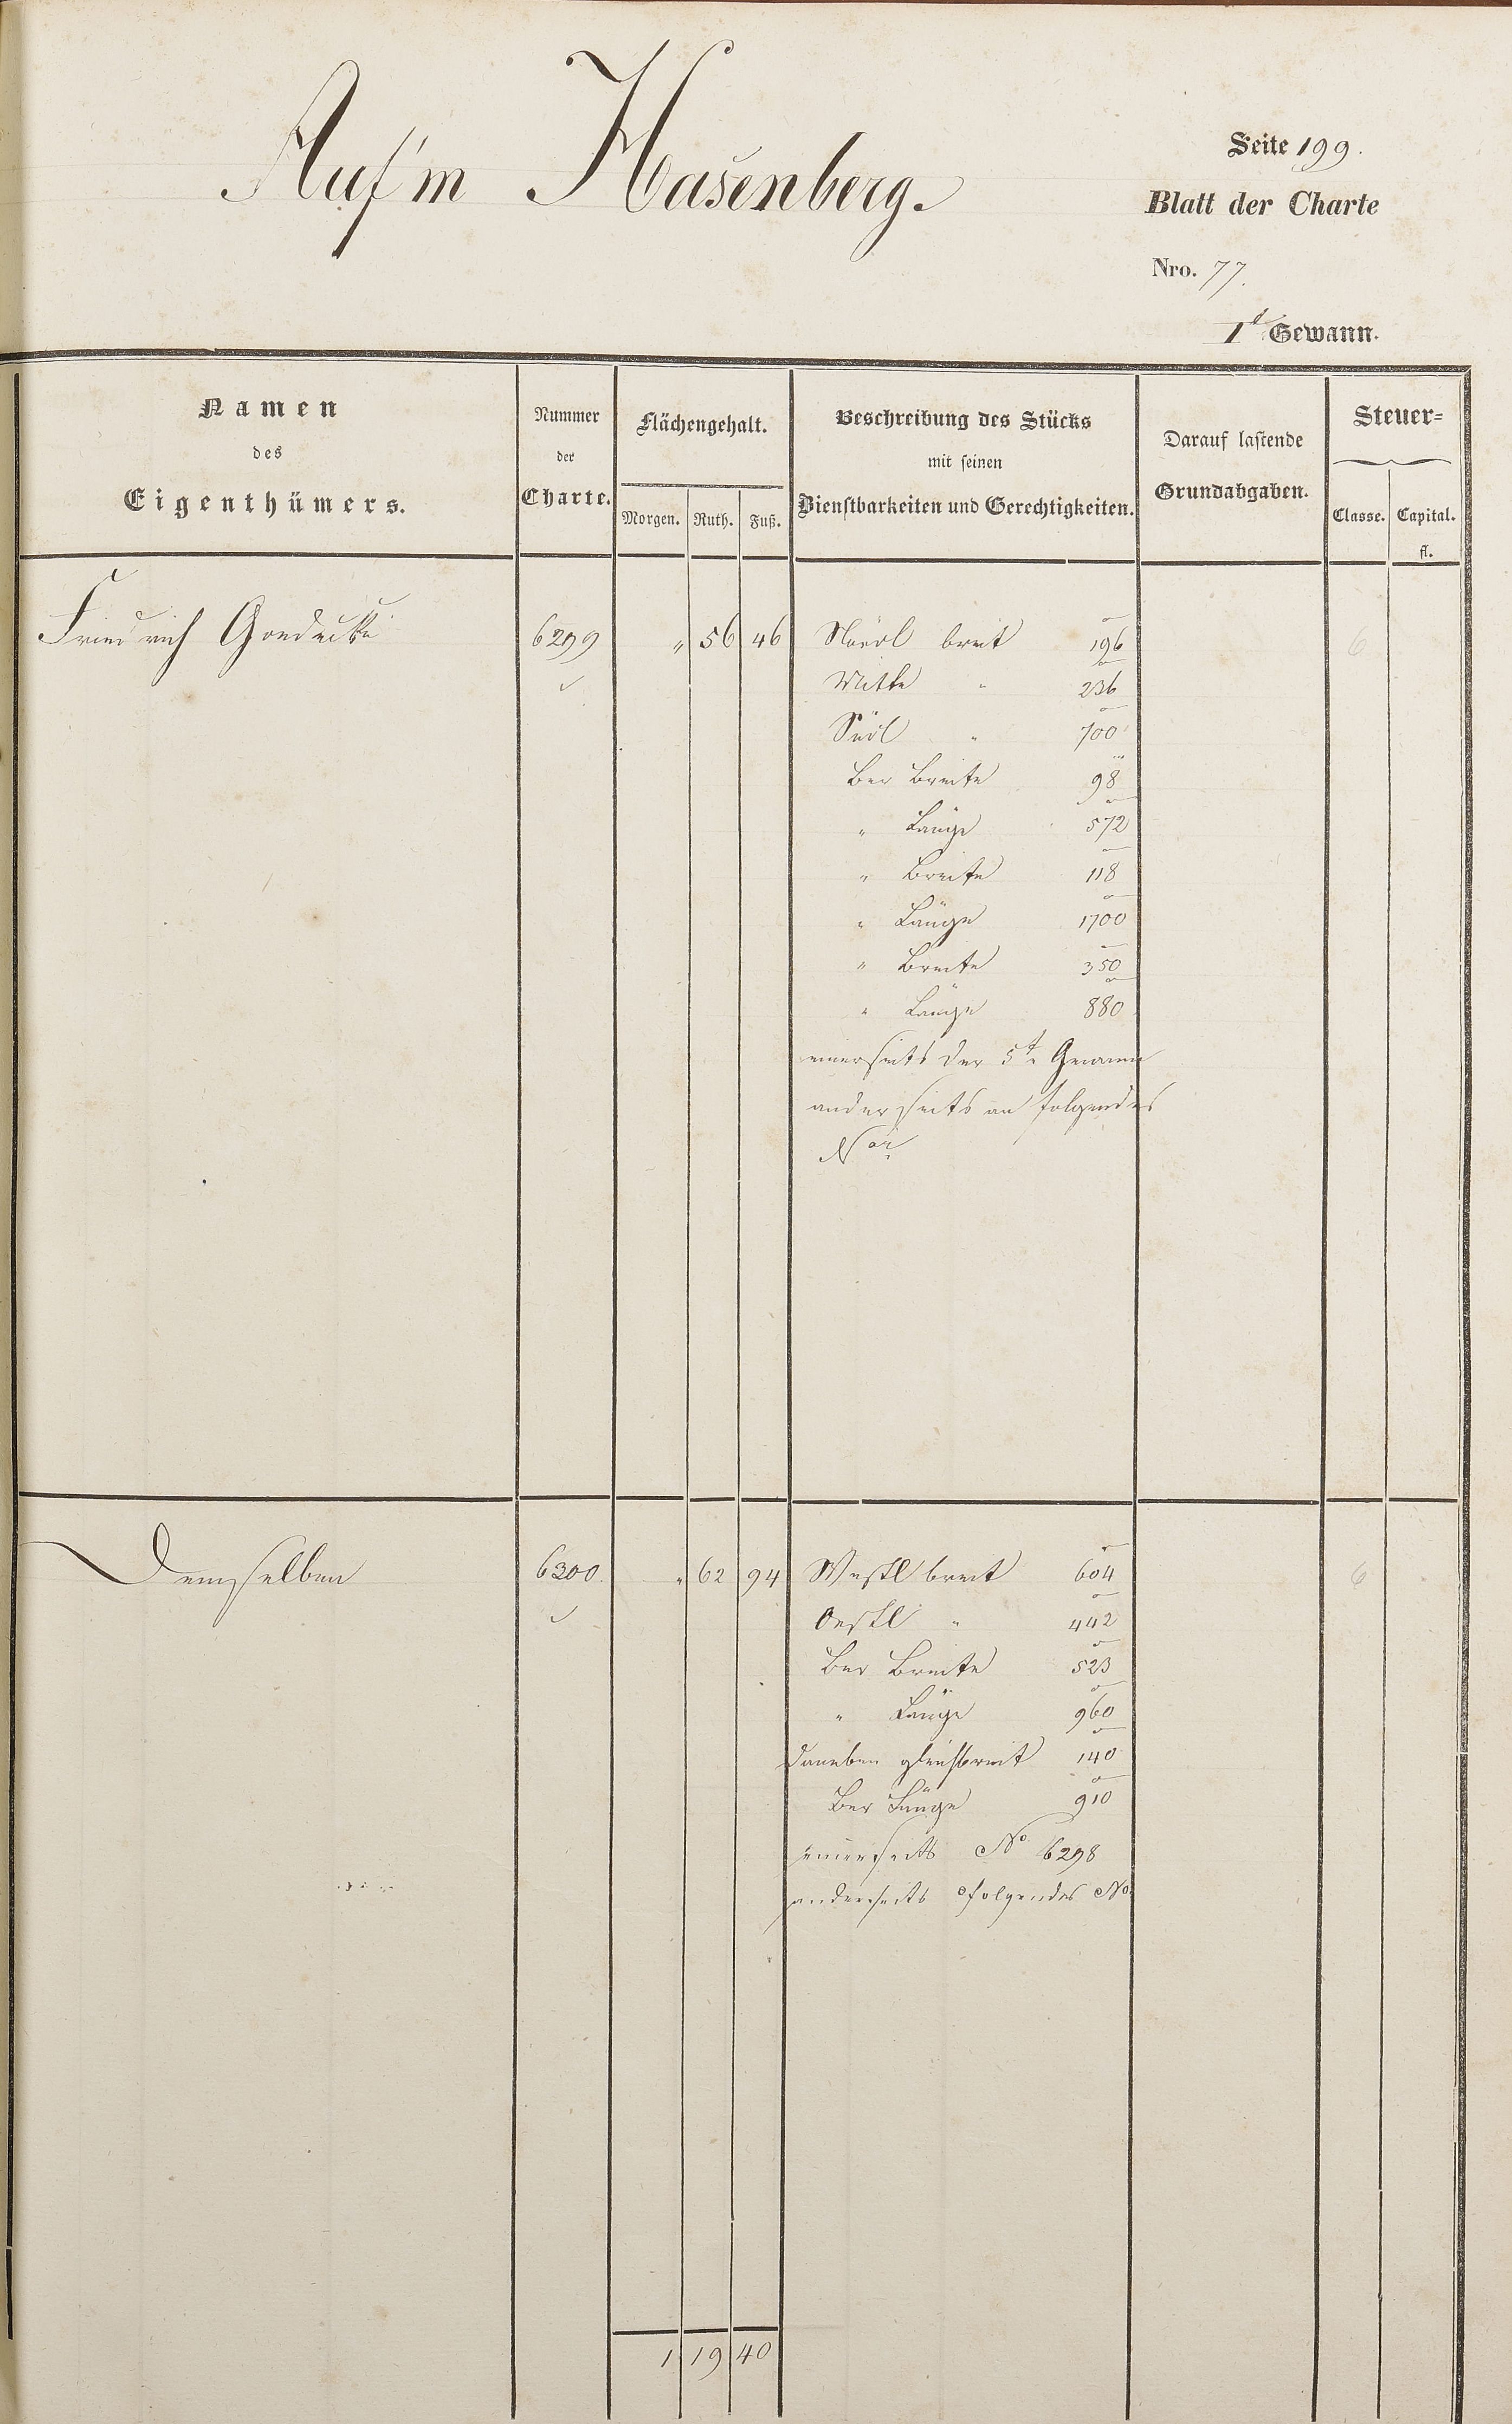 Auf'm Hasenberg.
Seite 199.
Blatt der Charte
Nro. 77.
1t Gewann.
Namen
des
Eigenthümers.
Nummer
der
Charte.
Flächengehalt.
Morgen. Ruth. Fuß.
Beschreibung des Stücks
mit seinen
Dienstbarkeiten und Gerechtigkeiten.
Darauf lastende
Grundabgaben.
Steuer-
Classe. Capital.
fl.
Friedrich Goedecke 6299 " 56 46 Nördl breit 196 6
Mitte " 236
Südl " 700
Ber Breite 98
" Länge 572
" Breite 118
" Länge 1700
" Breite 350
" Länge 880
einerseits der 5te Gewann
anderseits an folgendes
Nro
Demselben 6300. " 62 94 Westl breit 604 6
Oestl " 442
Ber Breite 523
" Länge 960
daneben gleichbreit 140
Ber Länge 910
einerseits No 6298
anderseits folgendes No
1 19 40